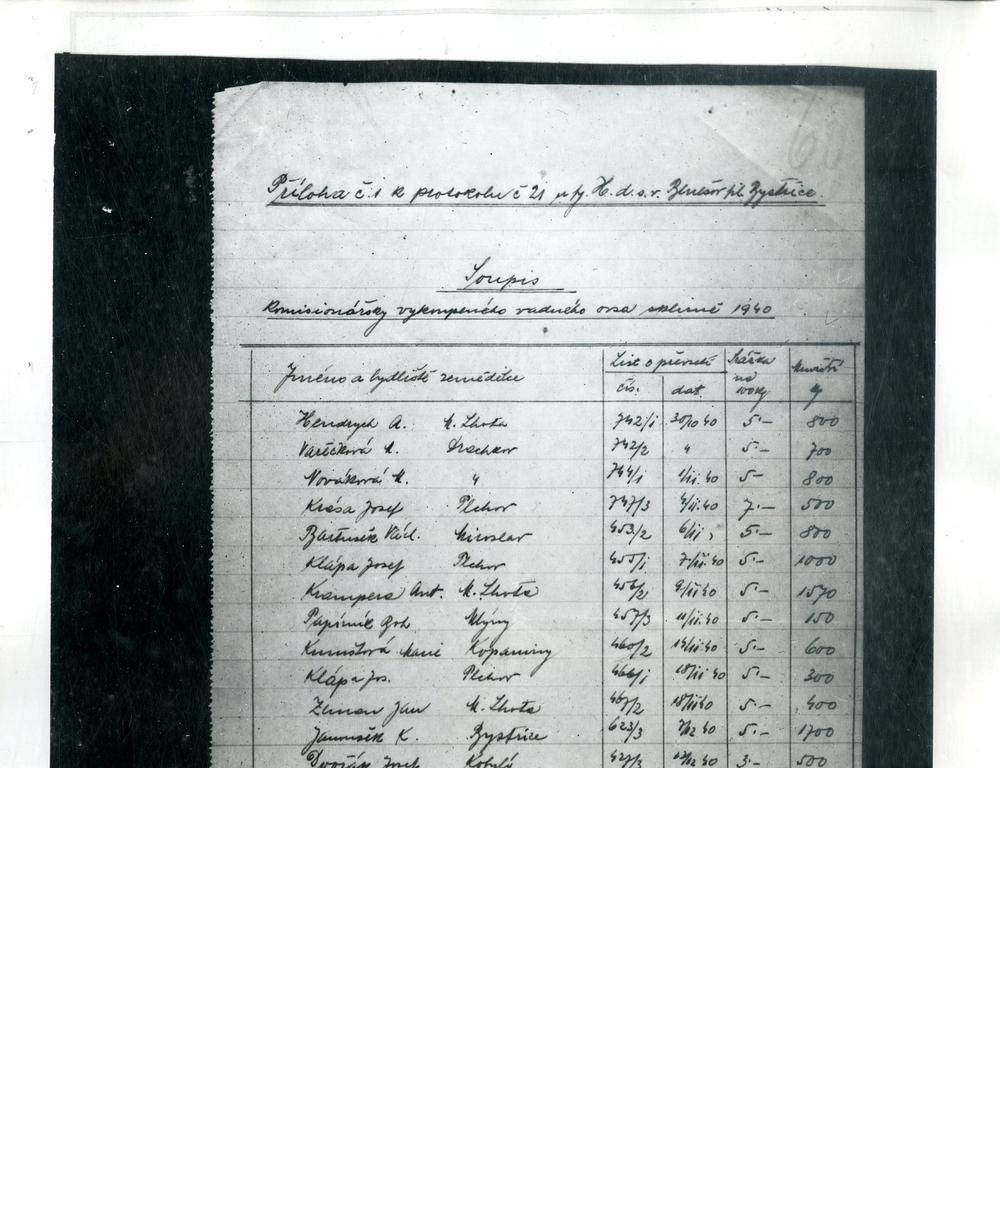 Příloha č. 1 k protokolu č 21 u fy. H. d. s. v. Benešov fil. Bystřice.
Soupis
komisionářsky vykoupeného vadného ovsa sklizně 1940
Jméno a bydliště zemědělce List o převzetí čís. dat. Srážka na 100 kg Množství kg
Hendrych A. M. Lhota 742/1 30/10 40 5.- 800
Vaněčková A. Drachkov 742/2 " 5.- 700
Nováková M. " 744/1 1/11.40 5- 800
Krása Josef Plchov 747/3 4/11.40 7.- 500
Bartušek Václ. Miroslav 453/2 6/11 5.- 800
Klápa Josef Plchov 455/1 7/11.40 5.- 1000
Krampera Ant. M. Lhota 456/2 9/11 40 5.- 1570
Papírník Boh Mlýny 457/3 11/11.40 5.- 150
Kunštová Marie Kopaniny 460/2 14/11.40 5.- 600
Klápa Jos. Plchov 466/1 18/11 40 5.- 300
Zeman Jan M. Lhota 467/2 18/11 40 5.- 400
Janoušek K. Bystřice 623/3 7/12 40 5.- 1700
Dvořák Josef 3.- 500